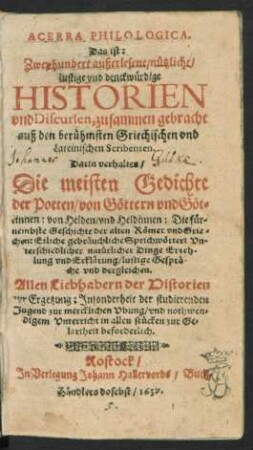 ACERRA PHILOLOGICA.
Das ist:
Zweyhundert außerlesene/nützliche/
lustige vnd denckwürdige
HISTORIEN
vnd Discursen, zusammen gebracht
auß den berühmsten Griechischen vnd
Lateinischen Scribenten.
Johannes
Darin verhalten/
Die meisten Gedichte
der Poeten/von Göttern vnd Göt-
tinnen: von Helden/vnd Heldinnen: Die für-
nembste Geschichte der alten Römer vnd Grie-
chen: Etliche gebräuchliche Sprichwörter: Vn-
terschiedlicher natürlicher Dinge Erzeh-
lung vnd Erklärung/lustige Gesprä-
che vnd dergleichen.
Allen Liebhabern der Historien
zur Ergetzung: Insonderheit der studierenden
Jugend zur mercklichen Vbung/vnd nothwen-
digem Vnterricht in allen stücken zur Ge-
lertheit beforderlich.
Rostock/
In Verlegung Johann Hallervords/Buch-
händlers daselbst/